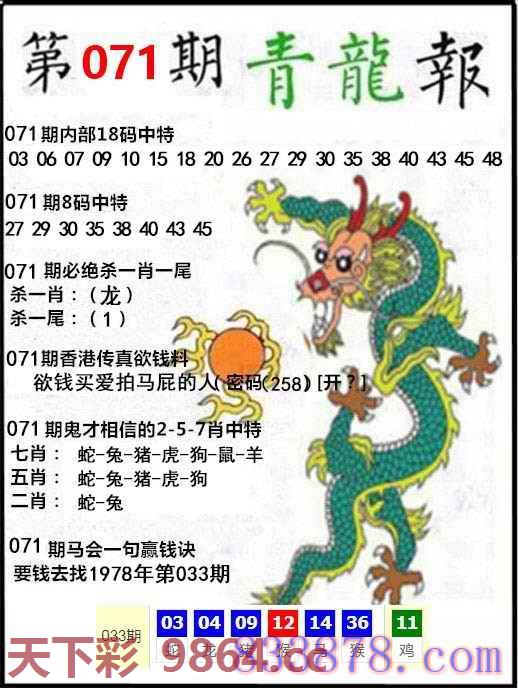 第071期 青龍報
071期内部18码中特
03 06 07 09 10 15 18 20 26 27 29 30 35 38 40 43 45 48
071期8码中特
27 29 30 35 38 40 43 45
071期必绝杀一肖一尾
杀一肖：（龙）
杀一尾：（1）
071期香港传真欲钱料
欲钱买爱拍马屁的人(密码(258)[开？]
071期鬼才相信的2-5-7肖中特
七肖： 蛇-兔-猪-虎-狗-鼠-羊
五肖： 蛇-兔-猪-虎-狗
二肖： 蛇-兔
071期马会一句赢钱诀
要钱去找1978年第033期
033期 03 04 09 12 14 36 11
蛇 龙 猪 猴 马 猴 鸡
天下彩 9864.cc
833878.com